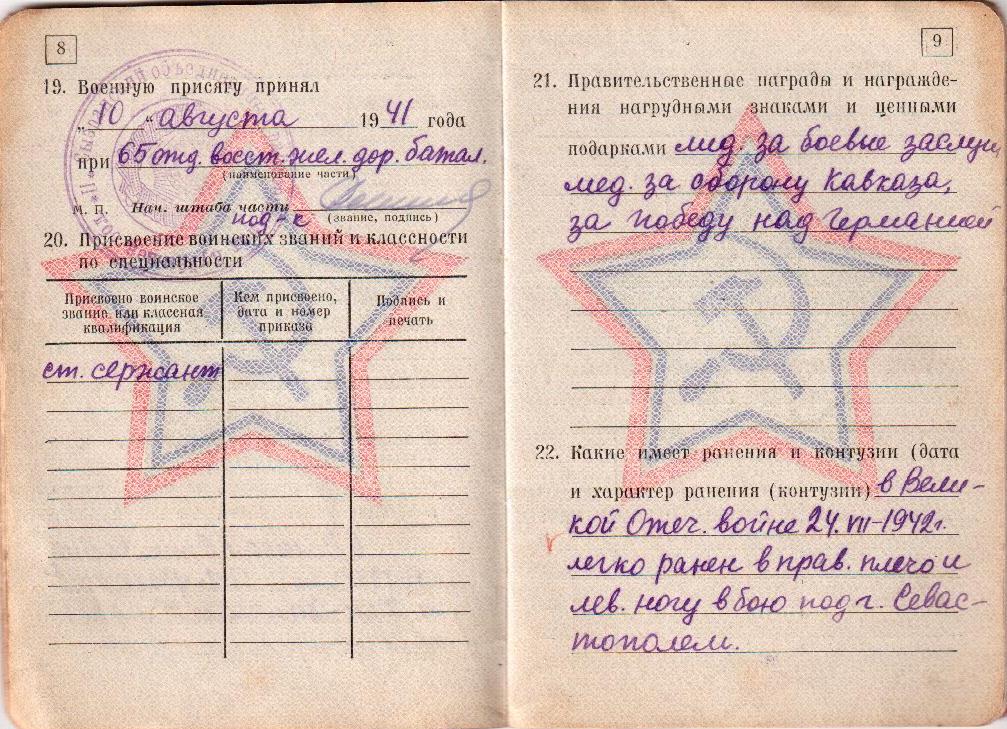 8
19. Военную присягу принял
„ 10 “ августа 1941 года
при 65 отд. восст. жел. дор. батал.
(наименование части)
М. П. Нач. штаба части
под-к (звание, подпись)
20. Присвоение воинских званий и классности
по специальности
Присвоено воинское
звание или классная
квалификация
Кем присвоено,
дата и номер
приказа
Подпись и
печать
ст. сержант
9
21. Правительственные награды и награжде-
ния нагрудными знаками и ценными
подарками мед. за боевые заслуги
мед. за оборону Кавказа,
за победу над Германией
22. Какие имеет ранения и контузии (дата
и характер ранения (контузии) в Вели-
кой Отеч. войне 24.VII-1942г.
легко ранен в прав. плечо и
лев. ногу в бою под г. Севас-
тополем.